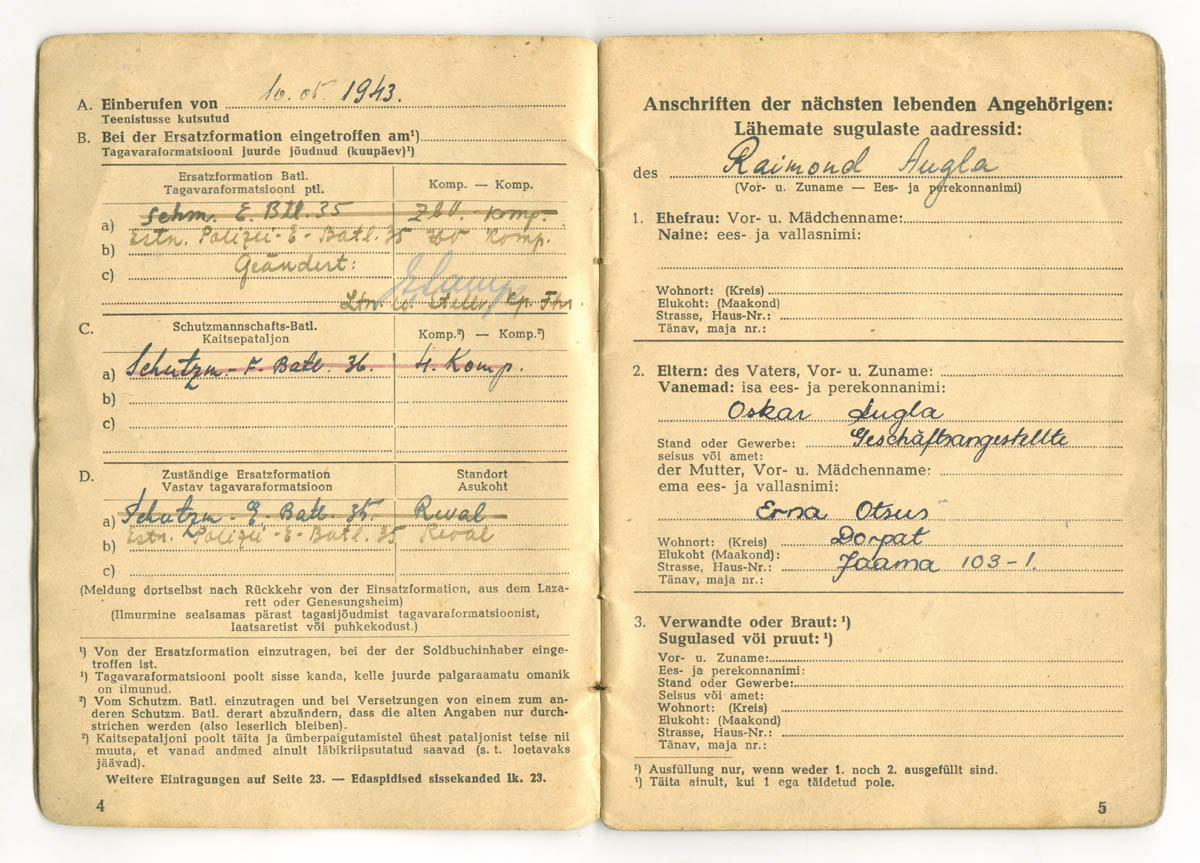 A. Einberufen von 10. 05. 1943.
Teenistusse kutsutud
B. Bei der Ersatzformation eingetroffen am¹)
Tagavaraformatsiooni juurde jõudnud (kuupäev)¹)
Ersatzformation Batl.
Tagavaraformatsiooni ptl.
Komp. — Komp.
a) Schm. E. Btl. 35 ZbV. Komp.
b) Estn. Polizei-E-Batl. 35 zbV Komp.
c) Geändert:
Ltn. u. Kp. Fhr.
C. Schutzmannschafts-Batl.
Kaitsepataljon
Komp.²) — Komp.²)
a) Schutzm.-F. Batl. 36. 4. Komp.
b)
c)
D. Zuständige Ersatzformation
Vastav tagavaraformatsioon
Standort
Asukoht
a) Schutzm.-E.-Batl. 35. Reval
b) Estn. Polizei-E-Batl. 35 Reval
c)
(Meldung dortselbst nach Rückkehr von der Einsatzformation, aus dem Laza-
rett oder Genesungsheim)
(Ilmurmine sealsamas pärast tagasijõudmist tagavaraformatsioonist,
laatsaretist või puhkekodust.)
¹) Von der Ersatzformation einzutragen, bei der der Soldbuchinhaber einge-
troffen ist.
¹) Tagavaraformatsiooni poolt sisse kanda, kelle juurde palgaraamatu omanik
on ilmunud.
²) Vom Schutzm. Batl. einzutragen und bei Versetzungen von einem zum an-
deren Schutzm. Batl. derart abzuändern, dass die alten Angaben nur durch-
strichen werden (also leserlich bleiben).
²) Kaitsepataljoni poolt täita ja ümberpaigutamistel ühest pataljonist teise nii
muuta, et vanad andmed ainult läbikriipsutatud saavad (s. t. loetavaks
jäävad).
Weitere Eintragungen auf Seite 23. — Edaspidised sissekanded lk. 23.
4
Anschriften der nächsten lebenden Angehörigen:
Lähemate sugulaste aadressid:
des Raimond Augla
(Vor- u. Zuname — Ees- ja perekonnanimi)
1. Ehefrau: Vor- u. Mädchenname:
Naine: ees- ja vallasnimi:
Wohnort: (Kreis)
Elukoht: (Maakond)
Strasse, Haus-Nr.:
Tänav, maja nr.:
2. Eltern: des Vaters, Vor- u. Zuname:
Vanemad: isa ees- ja perekonnanimi:
Oskar Augla
Stand oder Gewerbe: Geschäftsangestellte
seisus või amet:
der Mutter, Vor- u. Mädchenname:
ema ees- ja vallasnimi:
Erna Otsus
Wohnort: (Kreis) Dorpat
Elukoht (Maakond):
Strasse, Haus-Nr.: Jaama 103-1.
Tänav, maja nr.:
3. Verwandte oder Braut: ¹)
Sugulased või pruut: ¹)
Vor- u. Zuname:
Ees- ja perekonnanimi:
Stand oder Gewerbe:
Seisus või amet:
Wohnort: (Kreis)
Elukoht: (Maakond)
Strasse, Haus-Nr.:
Tänav, maja nr.:
¹) Ausfüllung nur, wenn weder 1. noch 2. ausgefüllt sind.
¹) Täita ainult, kui 1 ega täidetud pole.
5